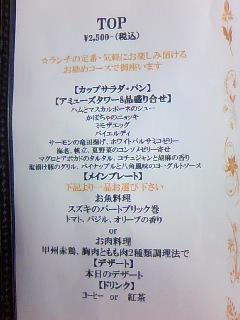 TOP
¥2,500-(税込)
☆ランチの定番・気軽にお楽しみ頂ける
お勧めコースで御座います
【カップサラダ・パン】
【アミューズタワー8品盛り合せ】
ハムとマスカルポーネのシュー
かぼちゃのニョッキ
ミモザエッグ
パイエルディ
サーモンの竜田揚げ、ホワイトバルサミコゼリー
海老、帆立、夏野菜のコンソメゼリー寄せ
マグロとアボカドのタルタル、コチュジャンと胡麻の香り
塩漬け豚のグリル、パイナップルと八角風味のヨーグルトソース
【メインプレート】
下記より一品お選び下さい
お魚料理
スズキのパートブリック巻
トマト、バジル、オリーブの香り
or
お肉料理
甲州赤鶏、胸肉ともも肉2種類調理法で
【デザート】
本日のデザート
【ドリンク】
コーヒー or 紅茶